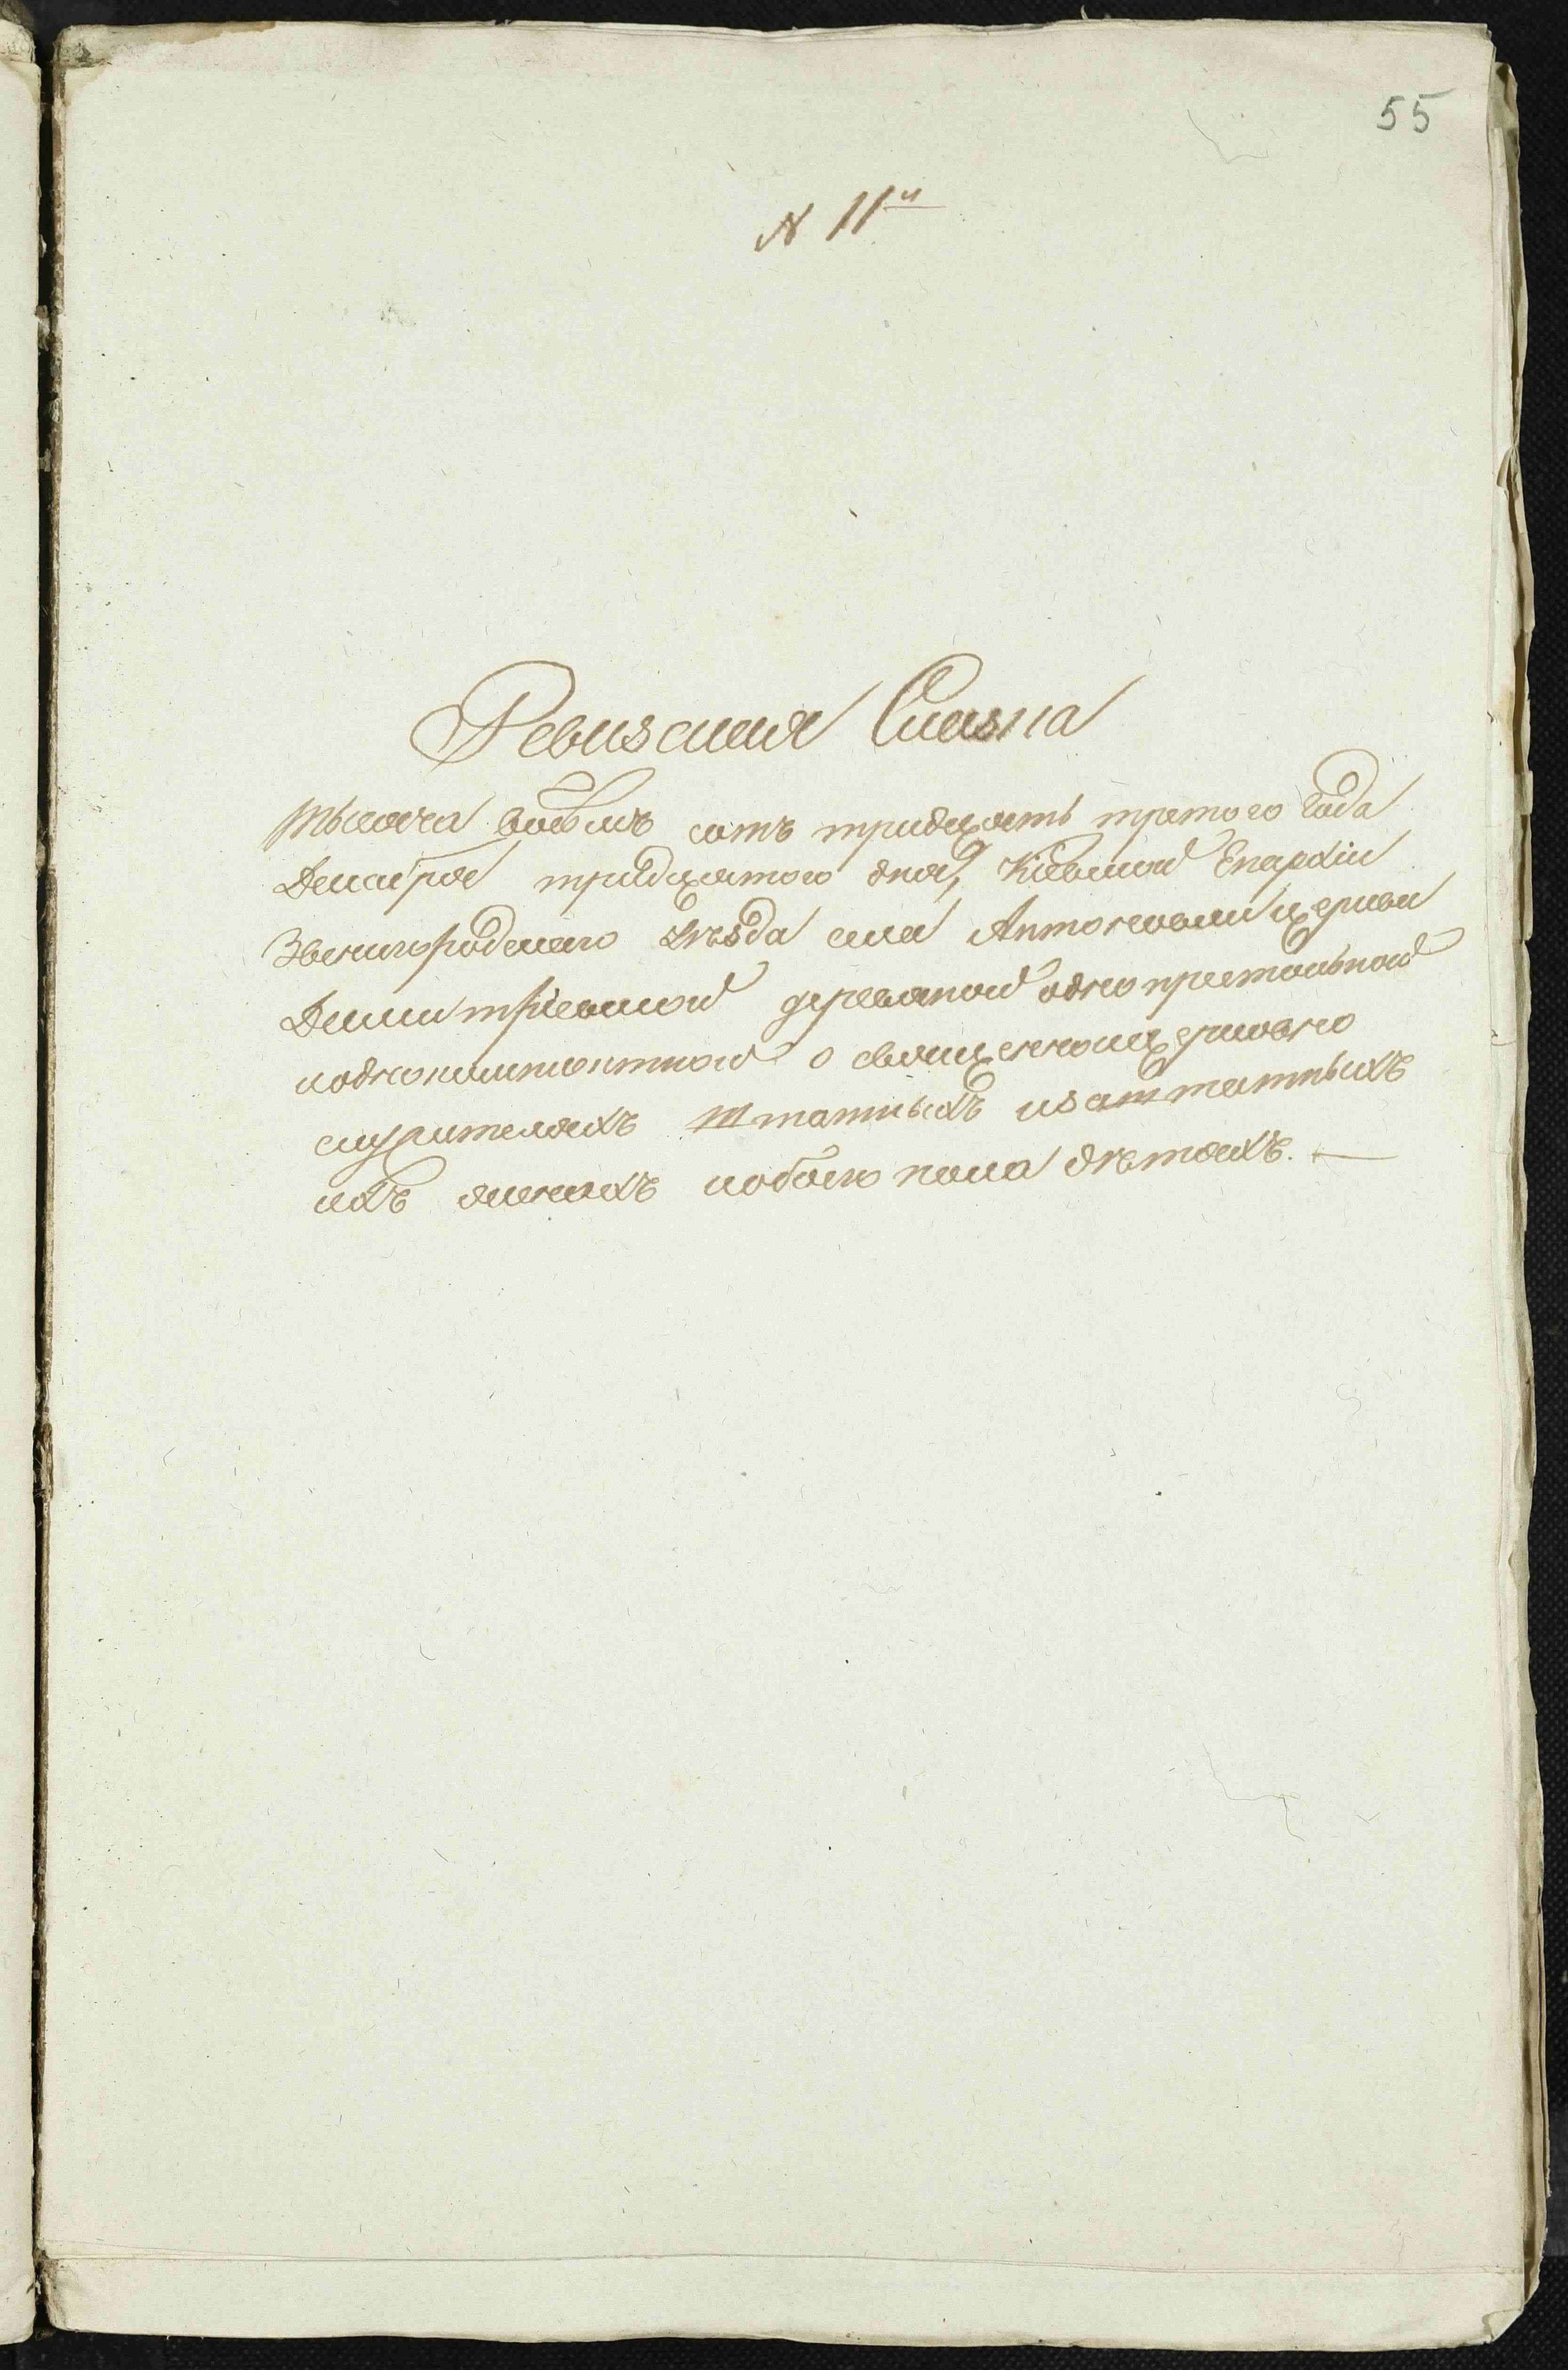 55
N 11й
Ревизская Сказка
тысяча восѣмъ сотъ тридцать третого года
Декабря тридцатого дня, Кіевской Епархіи
Звенигородского Уѣзда села Антоновки церкви
Димитріевской деревяной одно престольной
иодноклиментной о священноцерковно
служителяхъ штатныхъ изаштатныхъ
ихъ женахъ иобоего пола дѣтяхъ.